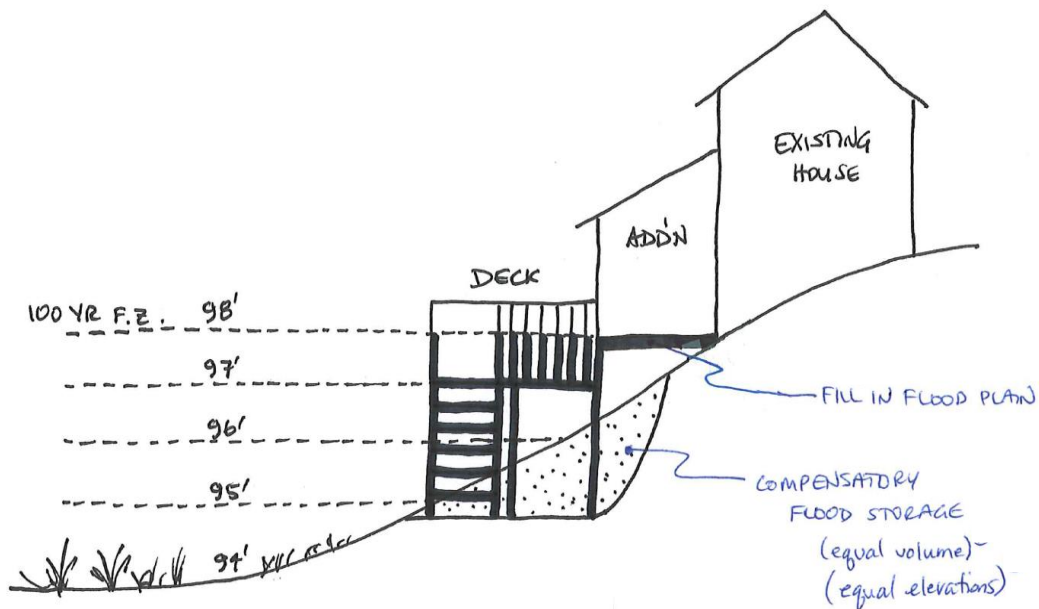 EXISTING
HOUSE
ADD'N
DECK
100 YR F.Z. 98'
97'
FILL IN FLOOD PLAIN
96'
95'
COMPENSATORY
FLOOD STORAGE
(equal volume)-
(equal elevations)
94'